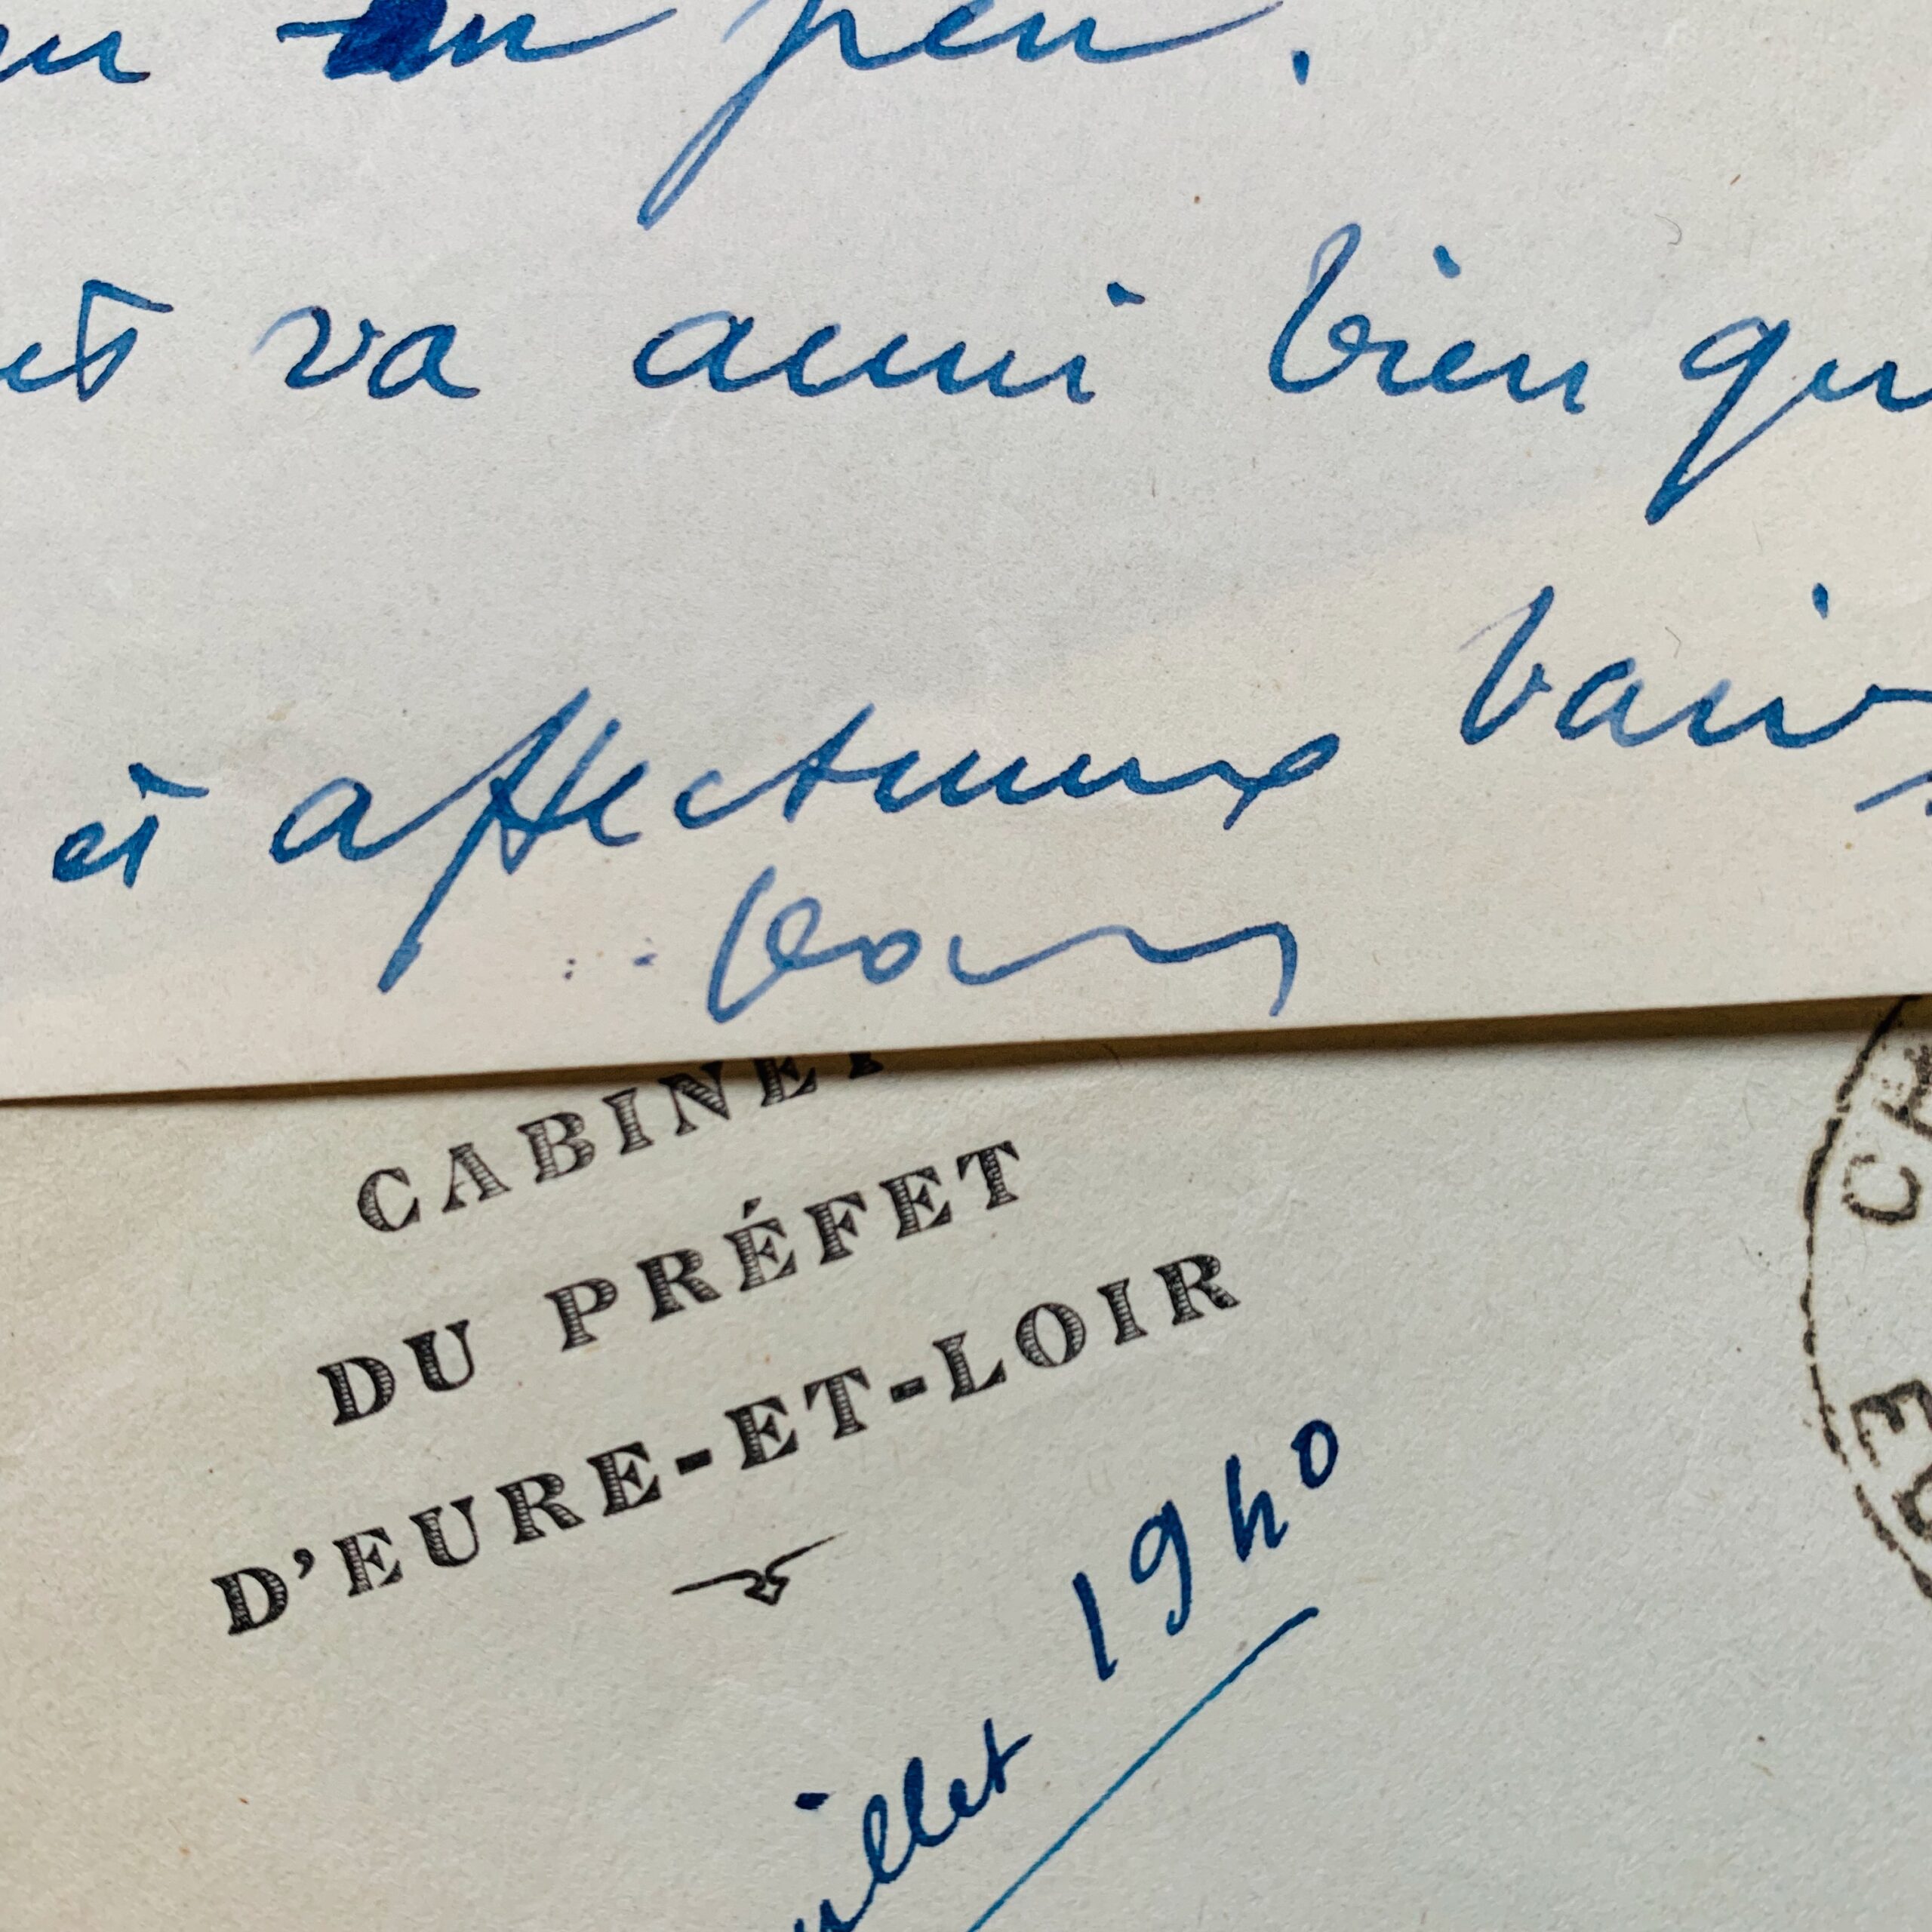 un peu.
va aussi bien qu
et affectueux baise
CABINET
DU PRÉFET
D'EURE-ET-LOIR
uillet 1940